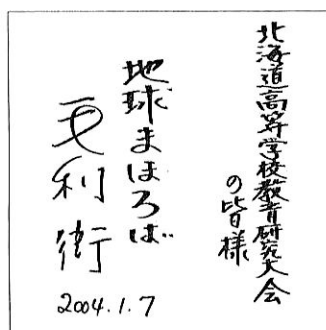 北海道高等学校教育研究大会
の皆様
地球まほろば
毛利衛
2004.1.7